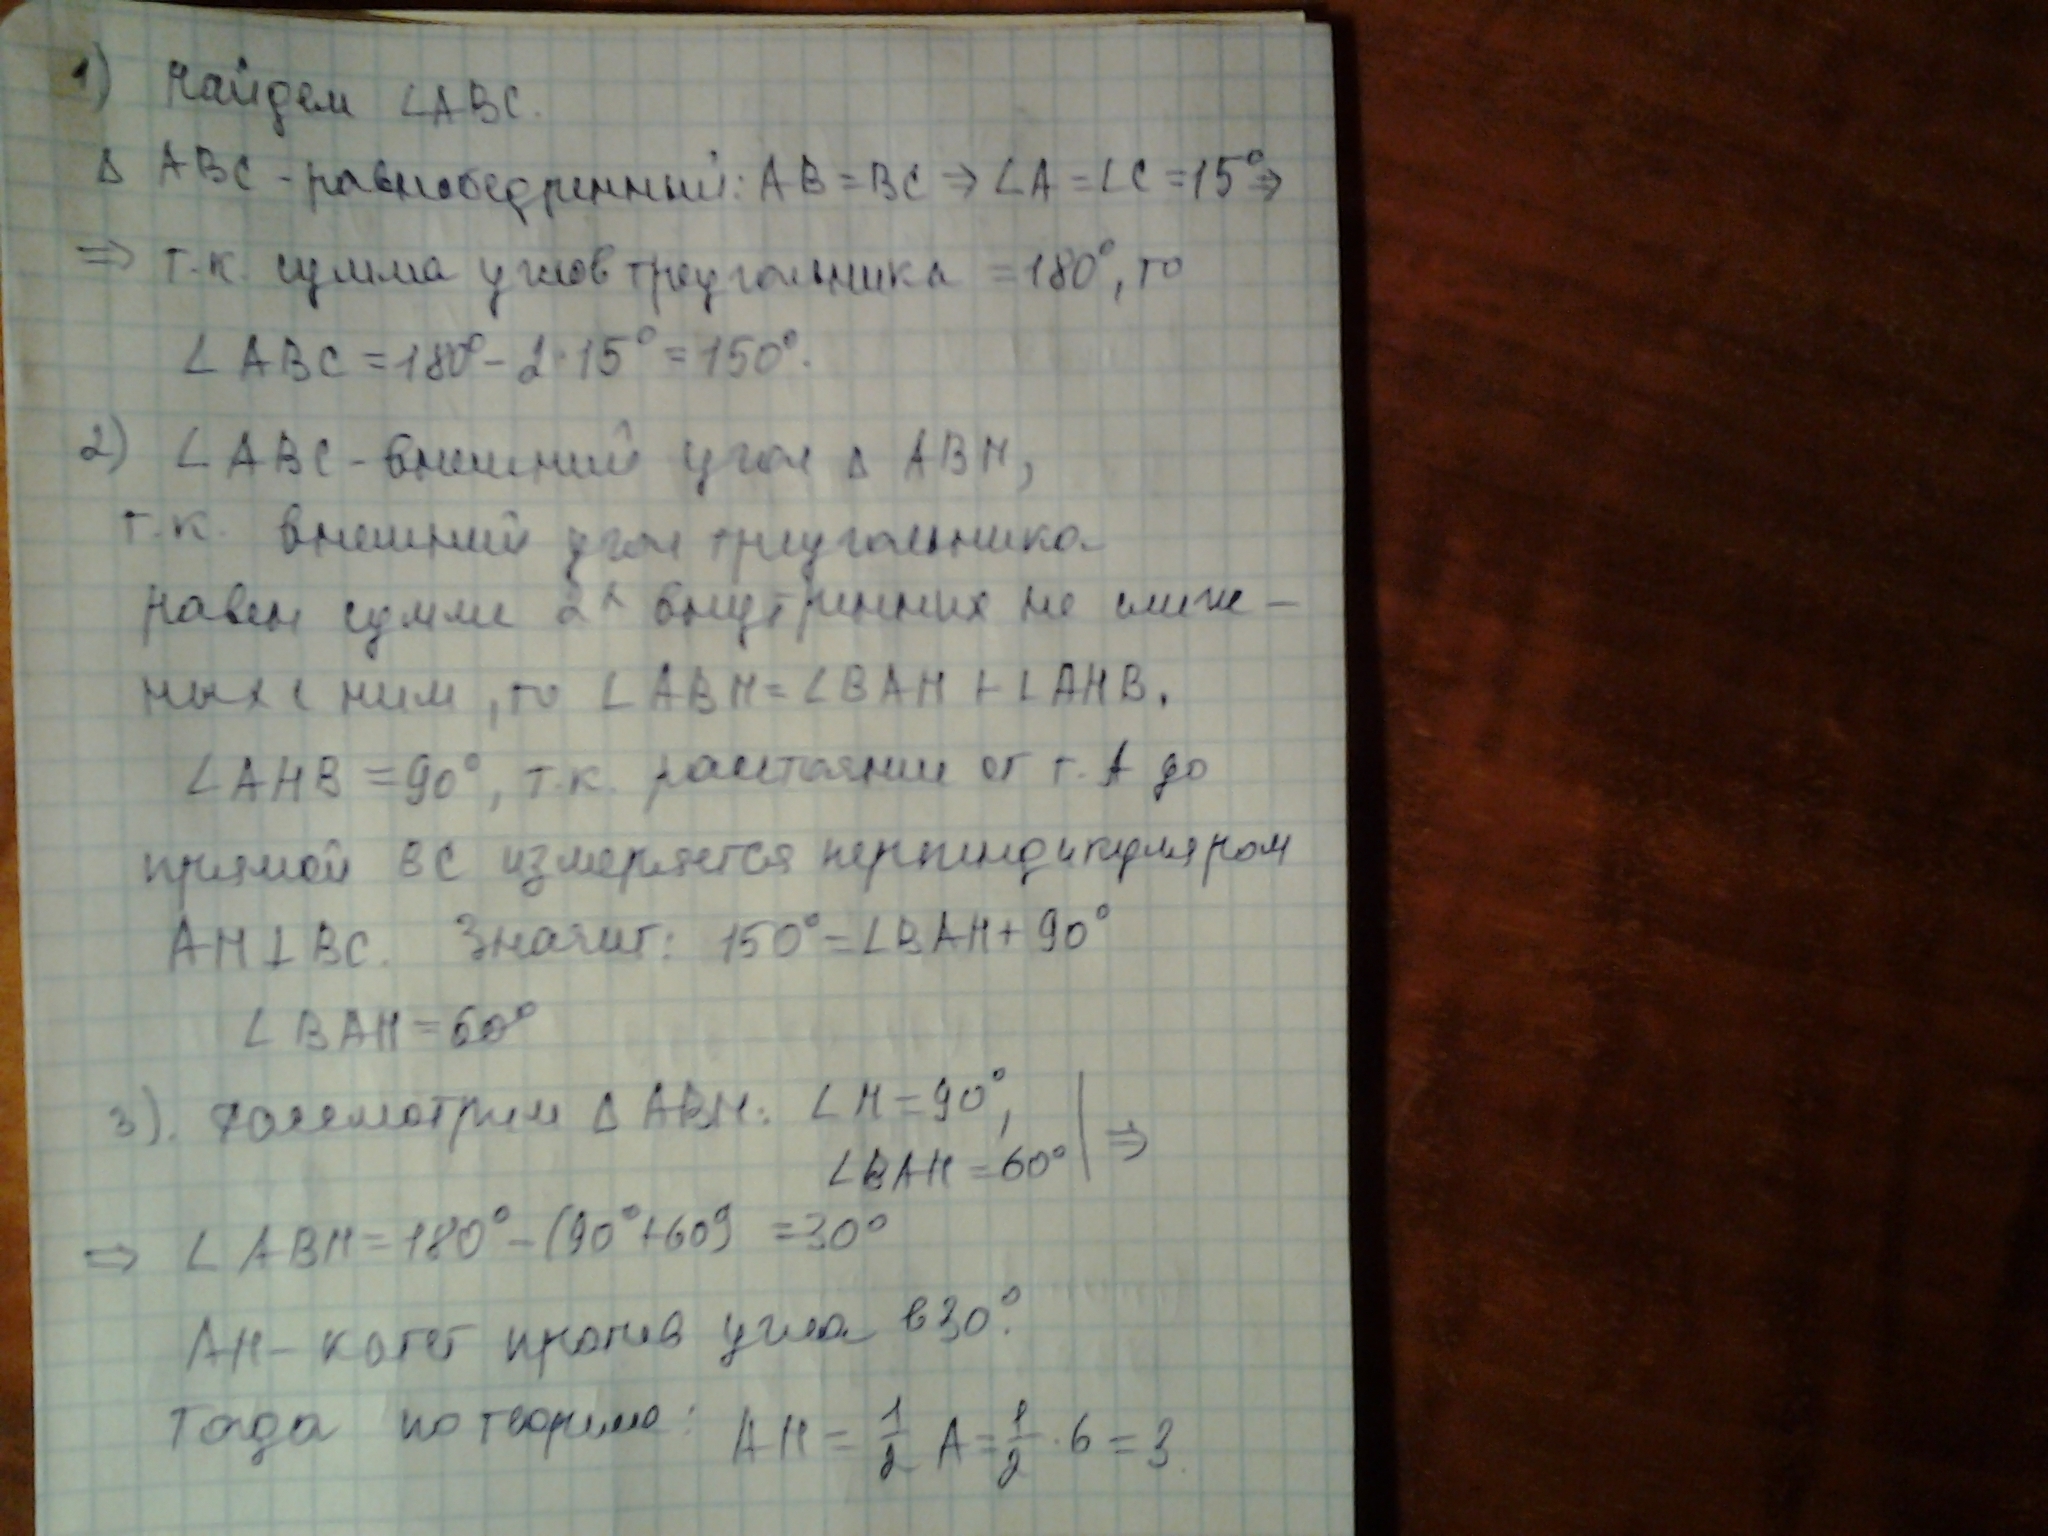 1) Найдем ∠ABC.
Δ ABC - равнобедренный: AB = BC ⇒ ∠A = ∠C = 15° ⇒
⇒ т.к. сумма углов треугольника = 180°, то
∠ABC = 180° - 2·15° = 150°.
2) ∠ABC - внешний угол Δ ABH,
т.к. внешний угол треугольника
равен сумме 2х внутренних не смеж-
ных с ним, то ∠ABH = ∠BAH + ∠AHB.
∠AHB = 90°, т.к. расстояние от т. A до
прямой BC измеряется перпендикуляром
AH ⊥ BC. Значит: 150° = ∠BAH + 90°
∠BAH = 60°
3). Рассмотрим Δ ABH: ∠H = 90°,
∠BAH = 60° | ⇒
⇒ ∠ABH = 180° - (90° + 60°) = 30°
AH - катет против угла в 30°.
Тогда по теореме: AH = 1/2 A = 1/2 · 6 = 3.